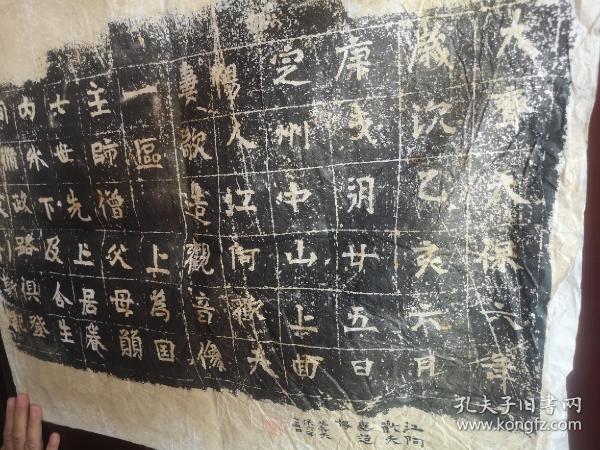 大齊天保六年
歲次乙亥元月
庚戌朔廿五日
定州中山上曲
陽人江阿歡夫
妻敬造觀音像
一區上為国
主師僧父母願
七世先上居眷
内外下及合生
路俱登
江阿
歡夫
孔夫子旧书网
www.kongfz.com